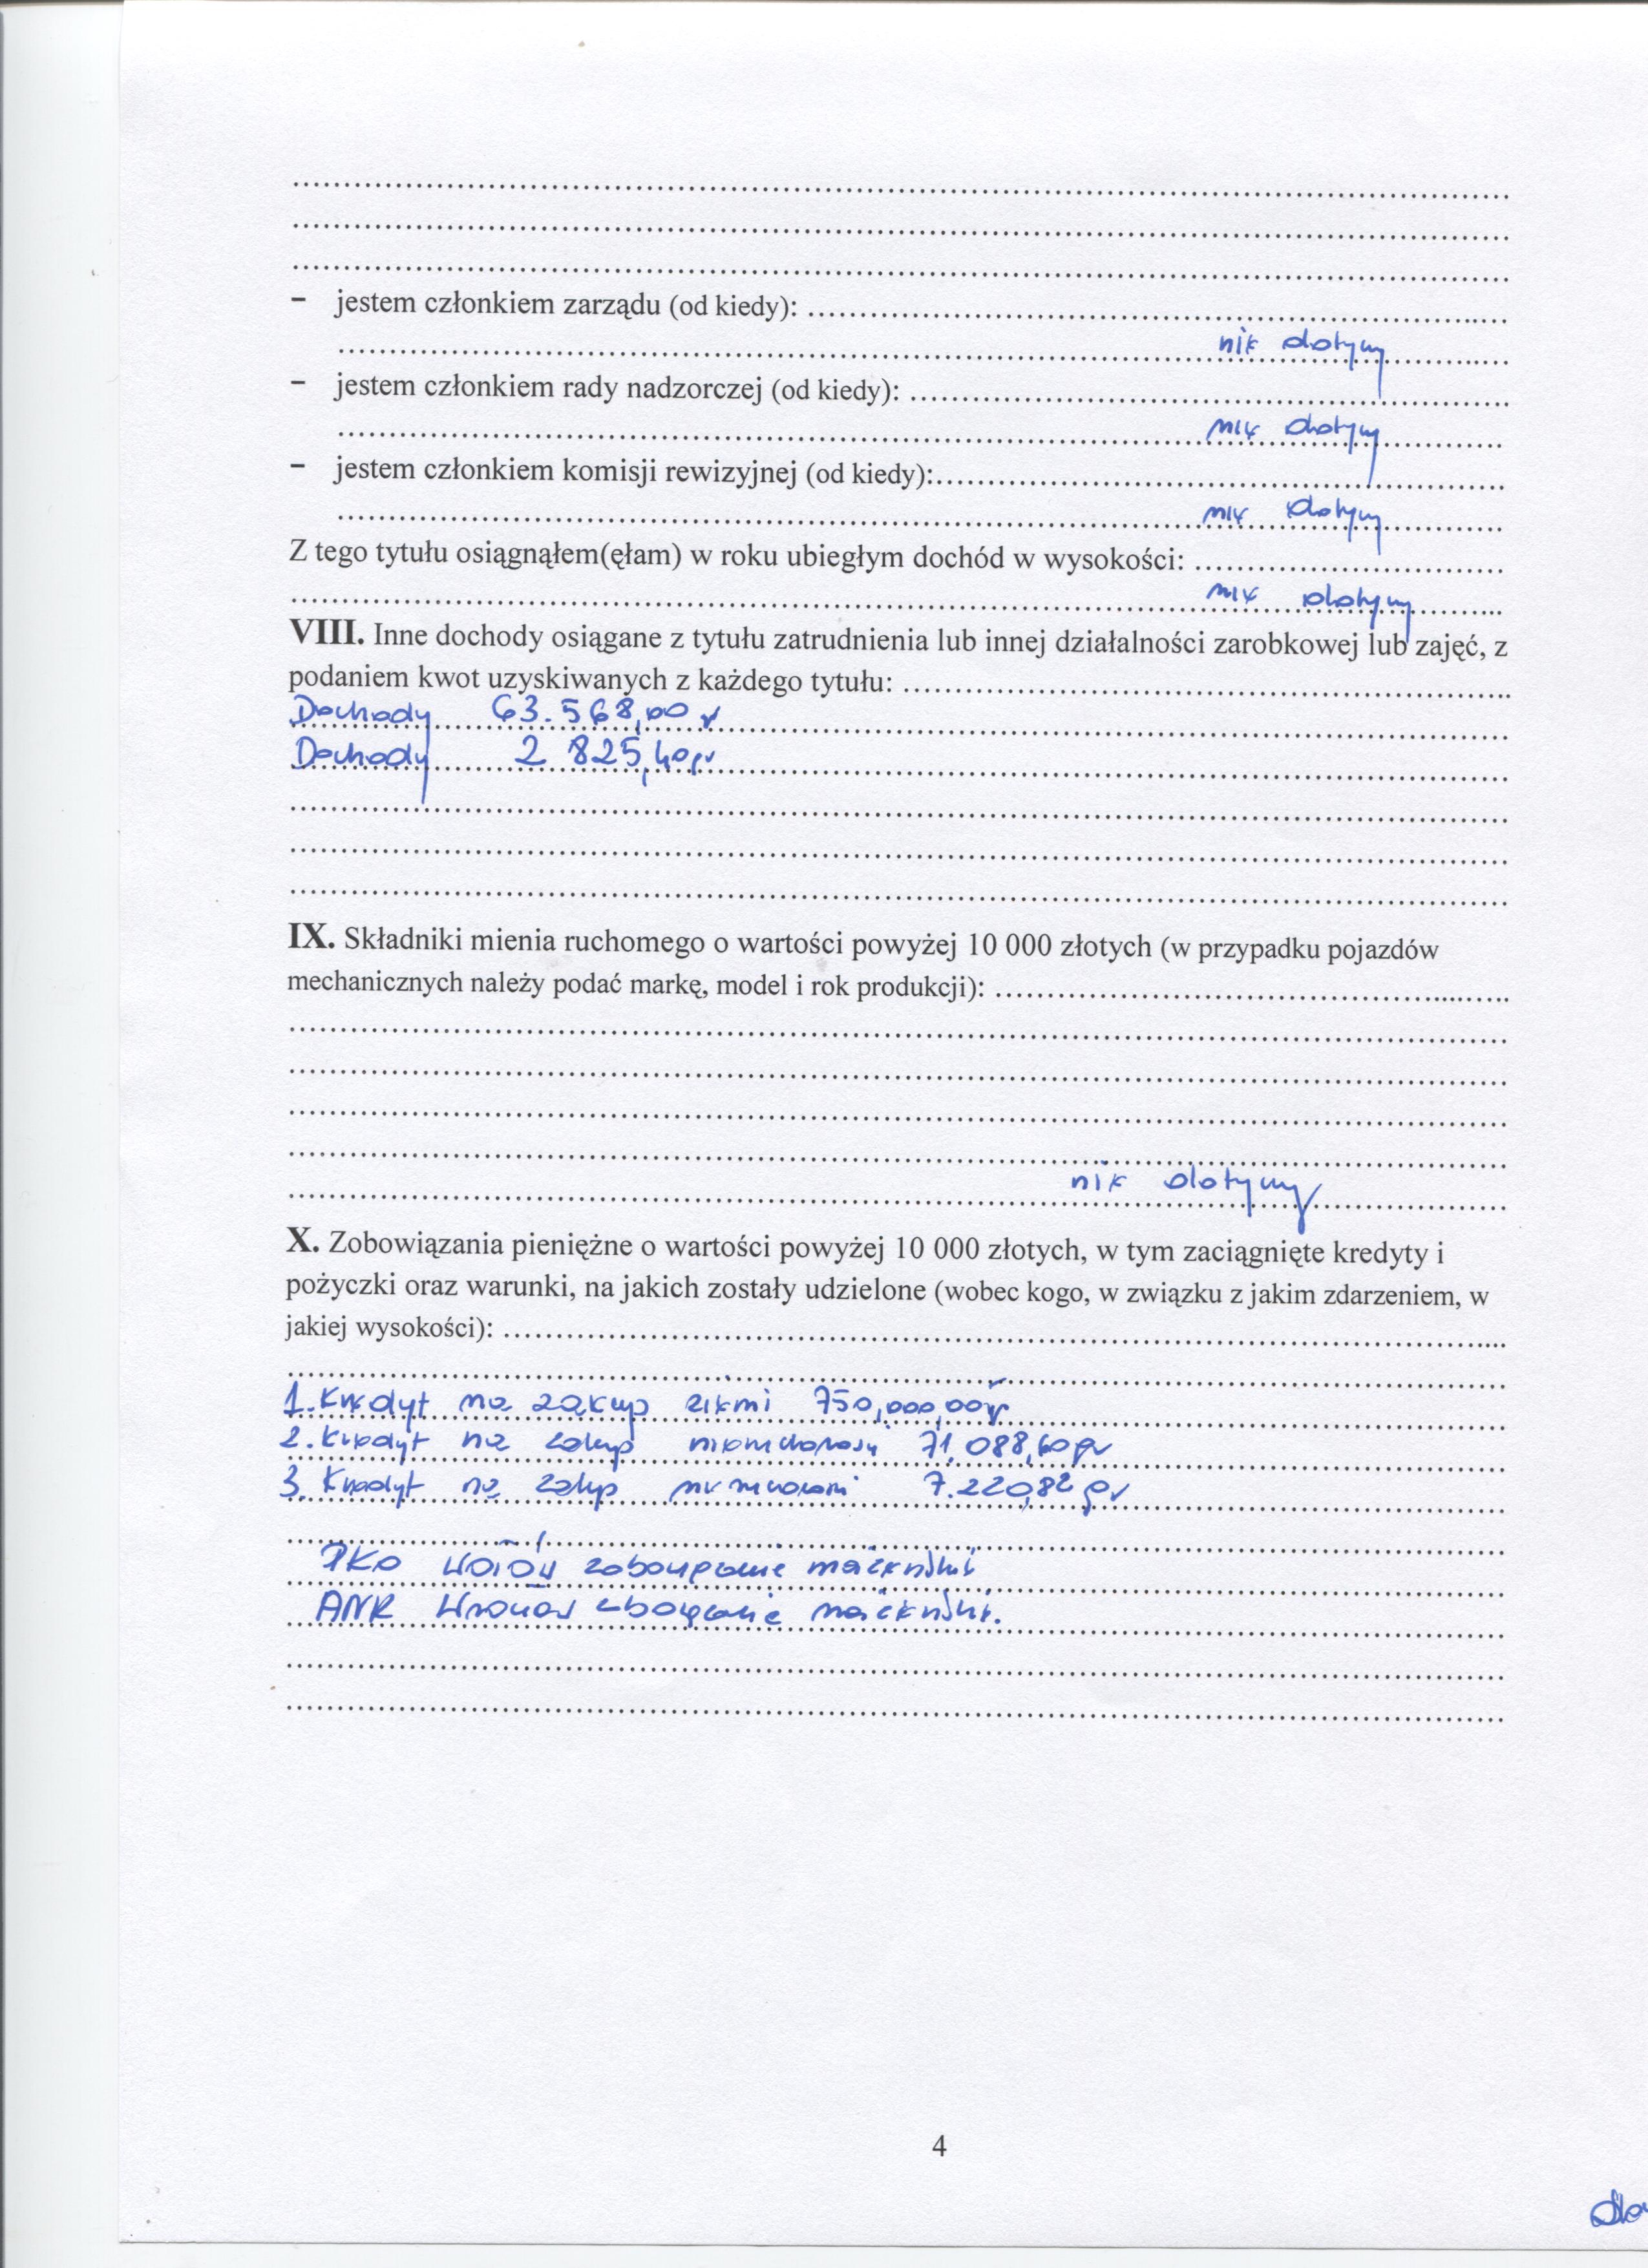 – jestem członkiem zarządu (od kiedy): ........................
nie dotyczy
– jestem członkiem rady nadzorczej (od kiedy): ........................
nie dotyczy
– jestem członkiem komisji rewizyjnej (od kiedy):........................
nie dotyczy
Z tego tytułu osiągnąłem(ęłam) w roku ubiegłym dochód w wysokości: ........................
nie dotyczy
VIII. Inne dochody osiągane z tytułu zatrudnienia lub innej działalności zarobkowej lub zajęć, z
podaniem kwot uzyskiwanych z każdego tytułu: ........................
Dochody 63.568,00
Dochody 2 825,40gr
IX. Składniki mienia ruchomego o wartości powyżej 10 000 złotych (w przypadku pojazdów
mechanicznych należy podać markę, model i rok produkcji): ........................
nie dotyczy
X. Zobowiązania pieniężne o wartości powyżej 10 000 złotych, w tym zaciągnięte kredyty i
pożyczki oraz warunki, na jakich zostały udzielone (wobec kogo, w związku z jakim zdarzeniem, w
jakiej wysokości): ........................
1. Kredyt na zakup ziemi 750,000,00
2. Kredyt na zakup nieruchomości 71.088,60gr
3. Kredyt na zakup nieruchomości 7.220,82 gr
PKO zobowiązanie małżeńskie
ANR zobowiązanie małżeńskie.
4